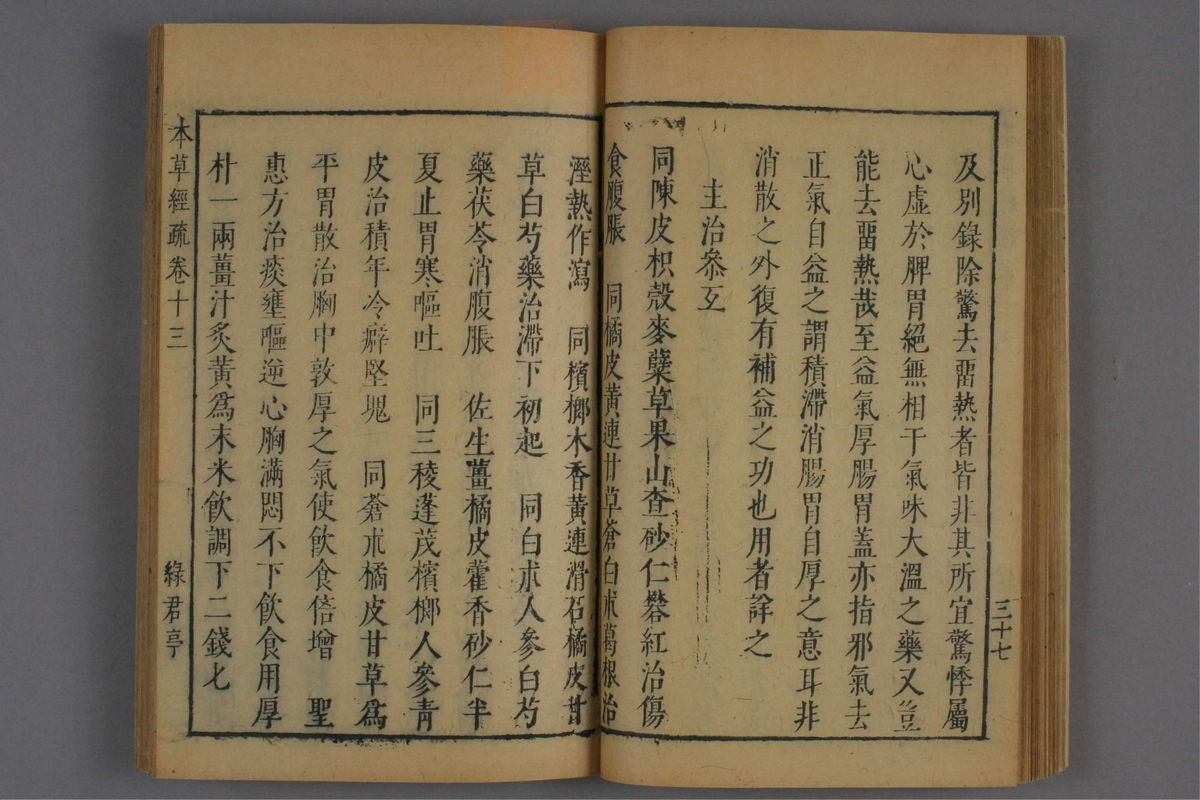 及別錄除驚去畱熱者皆非其所宜驚悸屬
心虛於脾胃絕無相干氣味大溫之藥又豈
能去畱熱哉至益氣厚腸胃蓋亦指邪氣去
正氣自益之謂積滯消腸胃自厚之意耳非
消散之外復有補益之功也用者詳之
主治叅互
同陳皮枳殼麥蘗草果山查砂仁礬紅治傷
食腹脹 同橘皮黄連甘草蒼白朮葛根治
三十七
溼熱作瀉 同檳榔木香黄連滑石橘皮甘
草白芍藥治滯下初起 同白朮人參白芍
藥茯苓消腹脹 佐生薑橘皮藿香砂仁半
夏止胃寒嘔吐 同三稜蓬茂檳榔人參青
皮治積年冷癖堅塊 同蒼朮橘皮甘草爲
平胃散治胸中敦厚之氣使飲食倍增 聖
惠方治痰壅嘔逆心胸滿悶不下飲食用厚
朴一兩薑汁炙黄爲末米飲調下二錢七
本草經疏卷十三
綠君亭